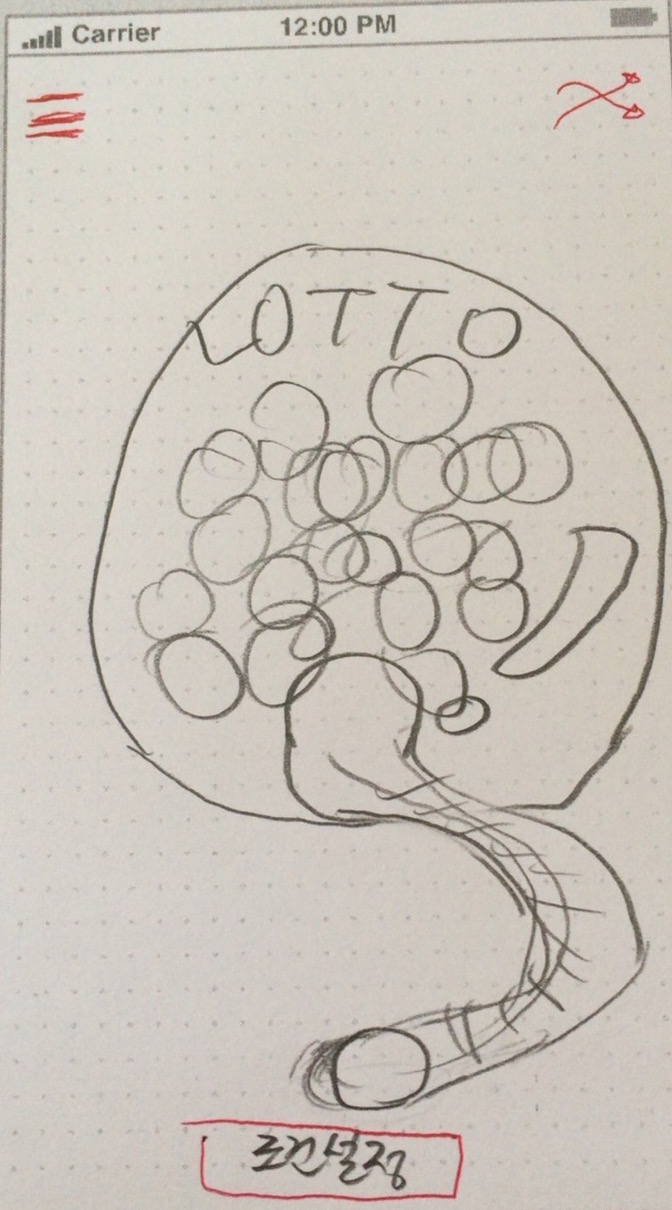 Carrier 12:00 PM
LOTTO
조건설정